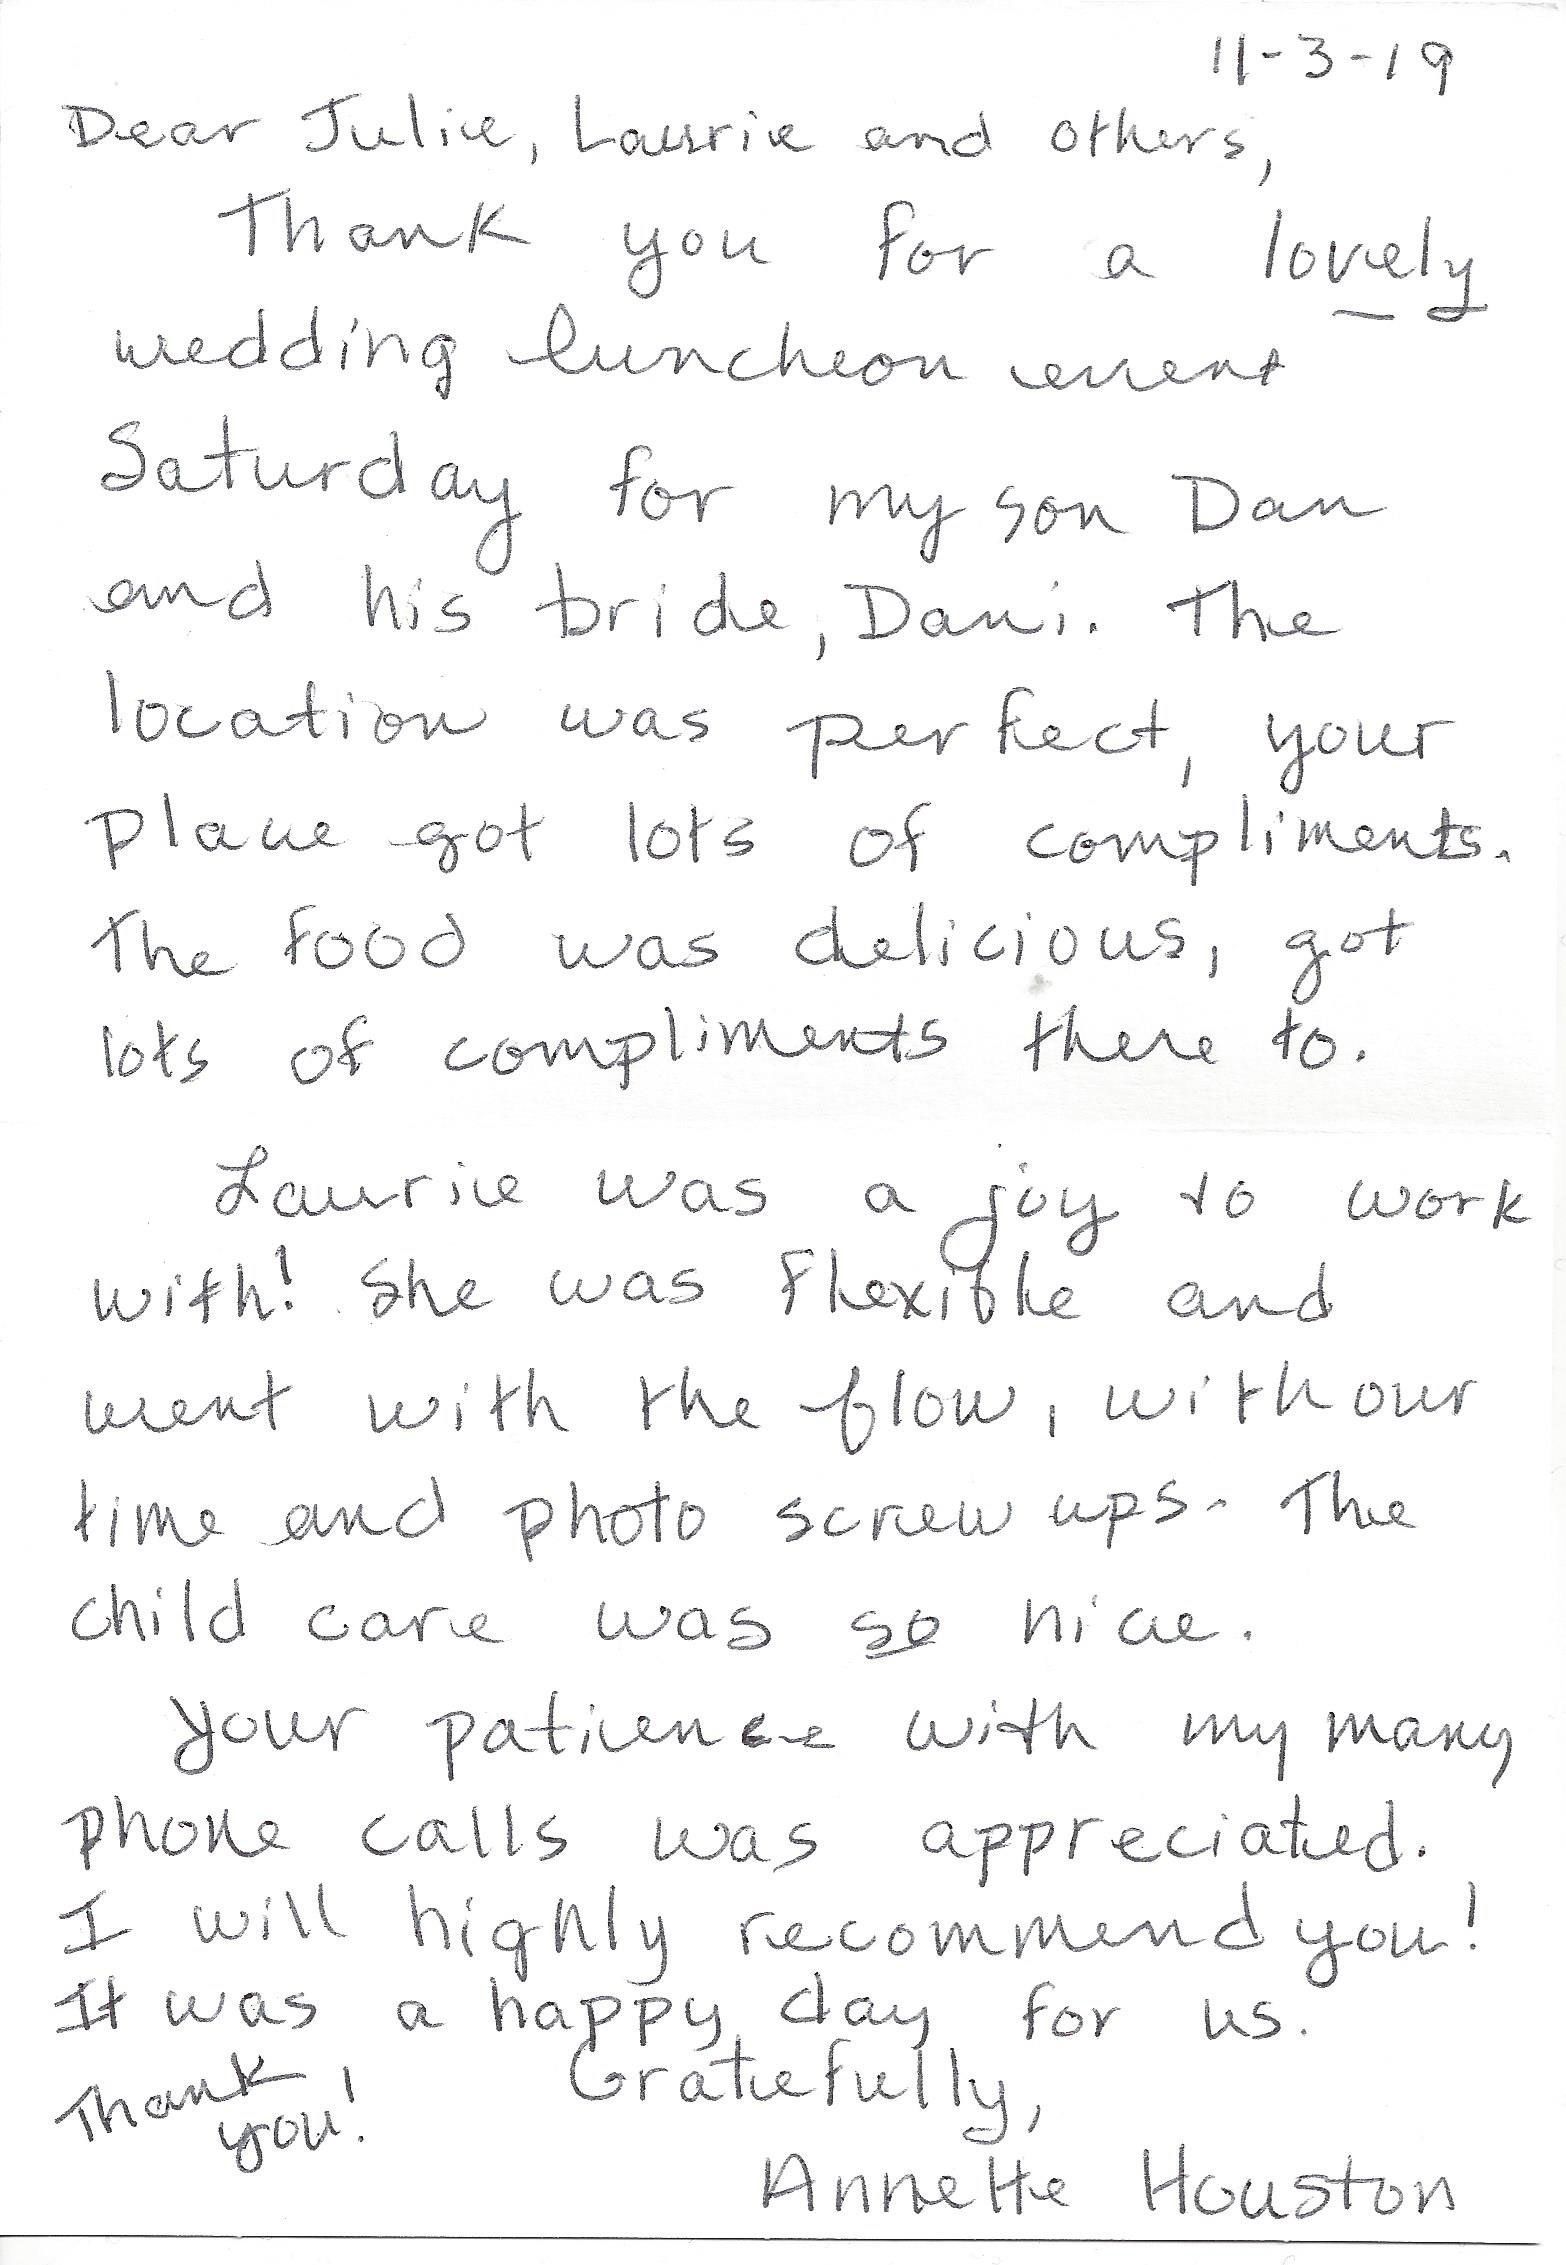 11-3-19
Dear Julie, Laurie and others,
Thank you for a lovely
wedding luncheon event
Saturday for my son Dan
and his bride, Dani. The
location was perfect, your
place got lots of compliments.
The food was delicious, got
lots of compliments there to.
Laurie was a joy to work
with! She was flexible and
went with the flow, with our
time and photo screw ups. The
child care was so nice.
Your patience with my many
phone calls was appreciated.
I will highly recommend you!
It was a happy day for us.
Thank
you!
Gratefully,
Annette Houston